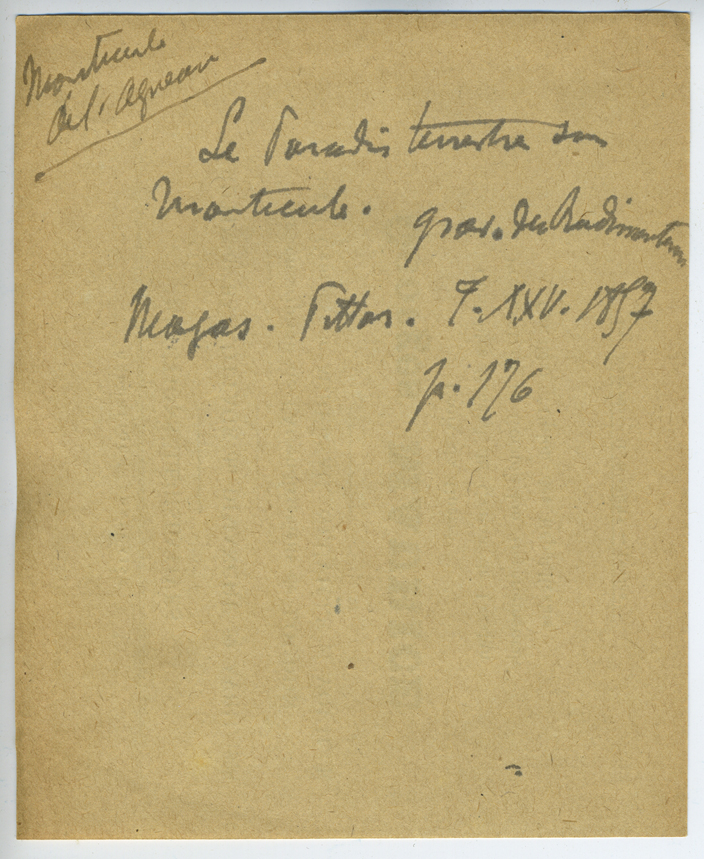 Monticule
de l'Agneau
Le Paradis terrestre sur
Monticule.
grav. du Rudimentum
Magas. Pittor. T. XXV. 1857
p. 176